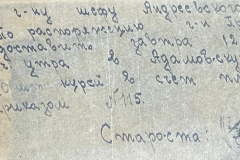 г-ну шефу Андреевского
по распоряжению г-н
доставить завтра 12
утра в Адамовску
курей в счет
приказом №115.
Староста: